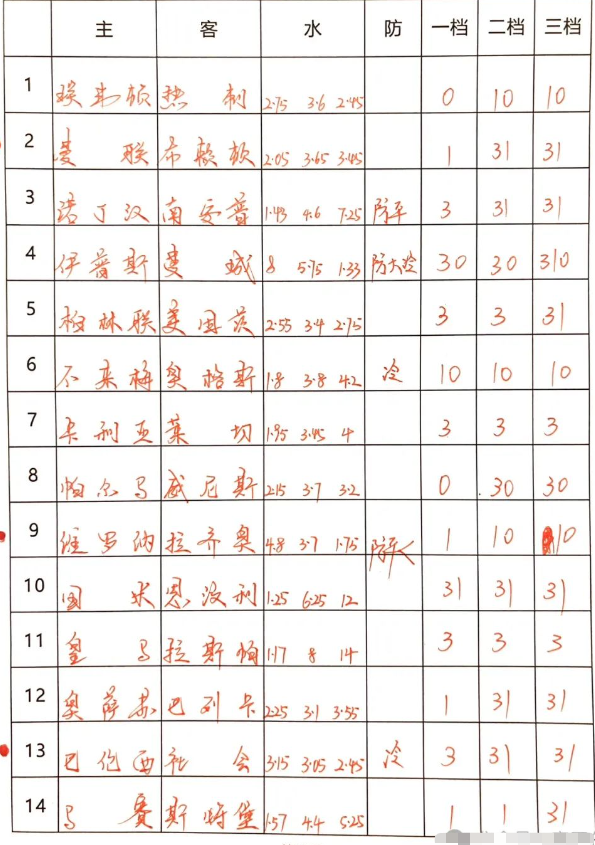 主 客 水 防 一档 二档 三档
1 埃弗顿 热刺 2.75 3.6 2.45 0 10 10
2 曼联 布教顿 2.05 3.65 3.45 1 31 31
3 诺丁汉 南安普 1.43 4.6 7.25 防平 3 31 31
4 伊普斯 曼城 8 5.75 1.33 防大冷 30 30 310
5 柏林联 美因茨 2.55 3.4 2.75 3 3 31
6 不来梅 奥格斯 1.8 3.8 4.2 冷 10 10 10
7 卡利亚 莱切 1.95 3.45 4 3 3 3
8 帕尔马 威尼斯 2.15 3.7 3.2 0 30 30
9 维罗纳 拉齐奥 4.8 3.7 1.75 防平 1 10 10
10 国米 恩波利 1.25 6.25 12 31 31 31
11 皇马 拉斯帕 1.17 8 14 3 3 3
12 奥萨苏 巴列卡 2.25 3.1 3.55 1 31 31
13 巴伦西 社会 3.15 3.05 2.45 冷 3 31 31
14 马赛 斯特堡 1.57 4.4 5.25 1 1 31